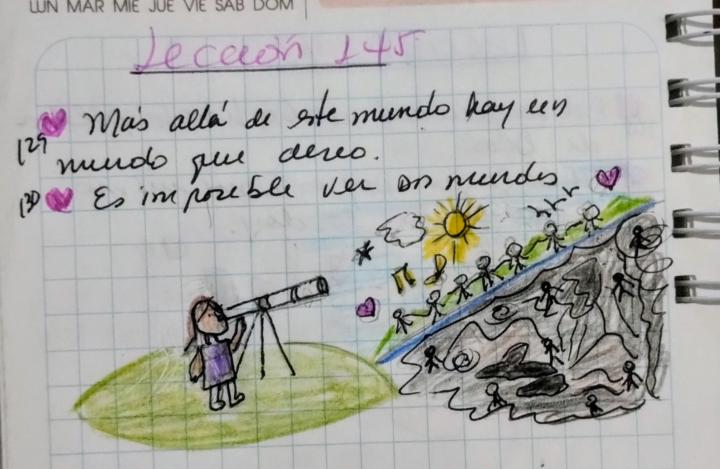 LUN MAR MIE JUE VIE SAB DOM
Lección 145
129 Más allá de este mundo hay un
mundo que deseo.
130 Es imposible ver dos mundos